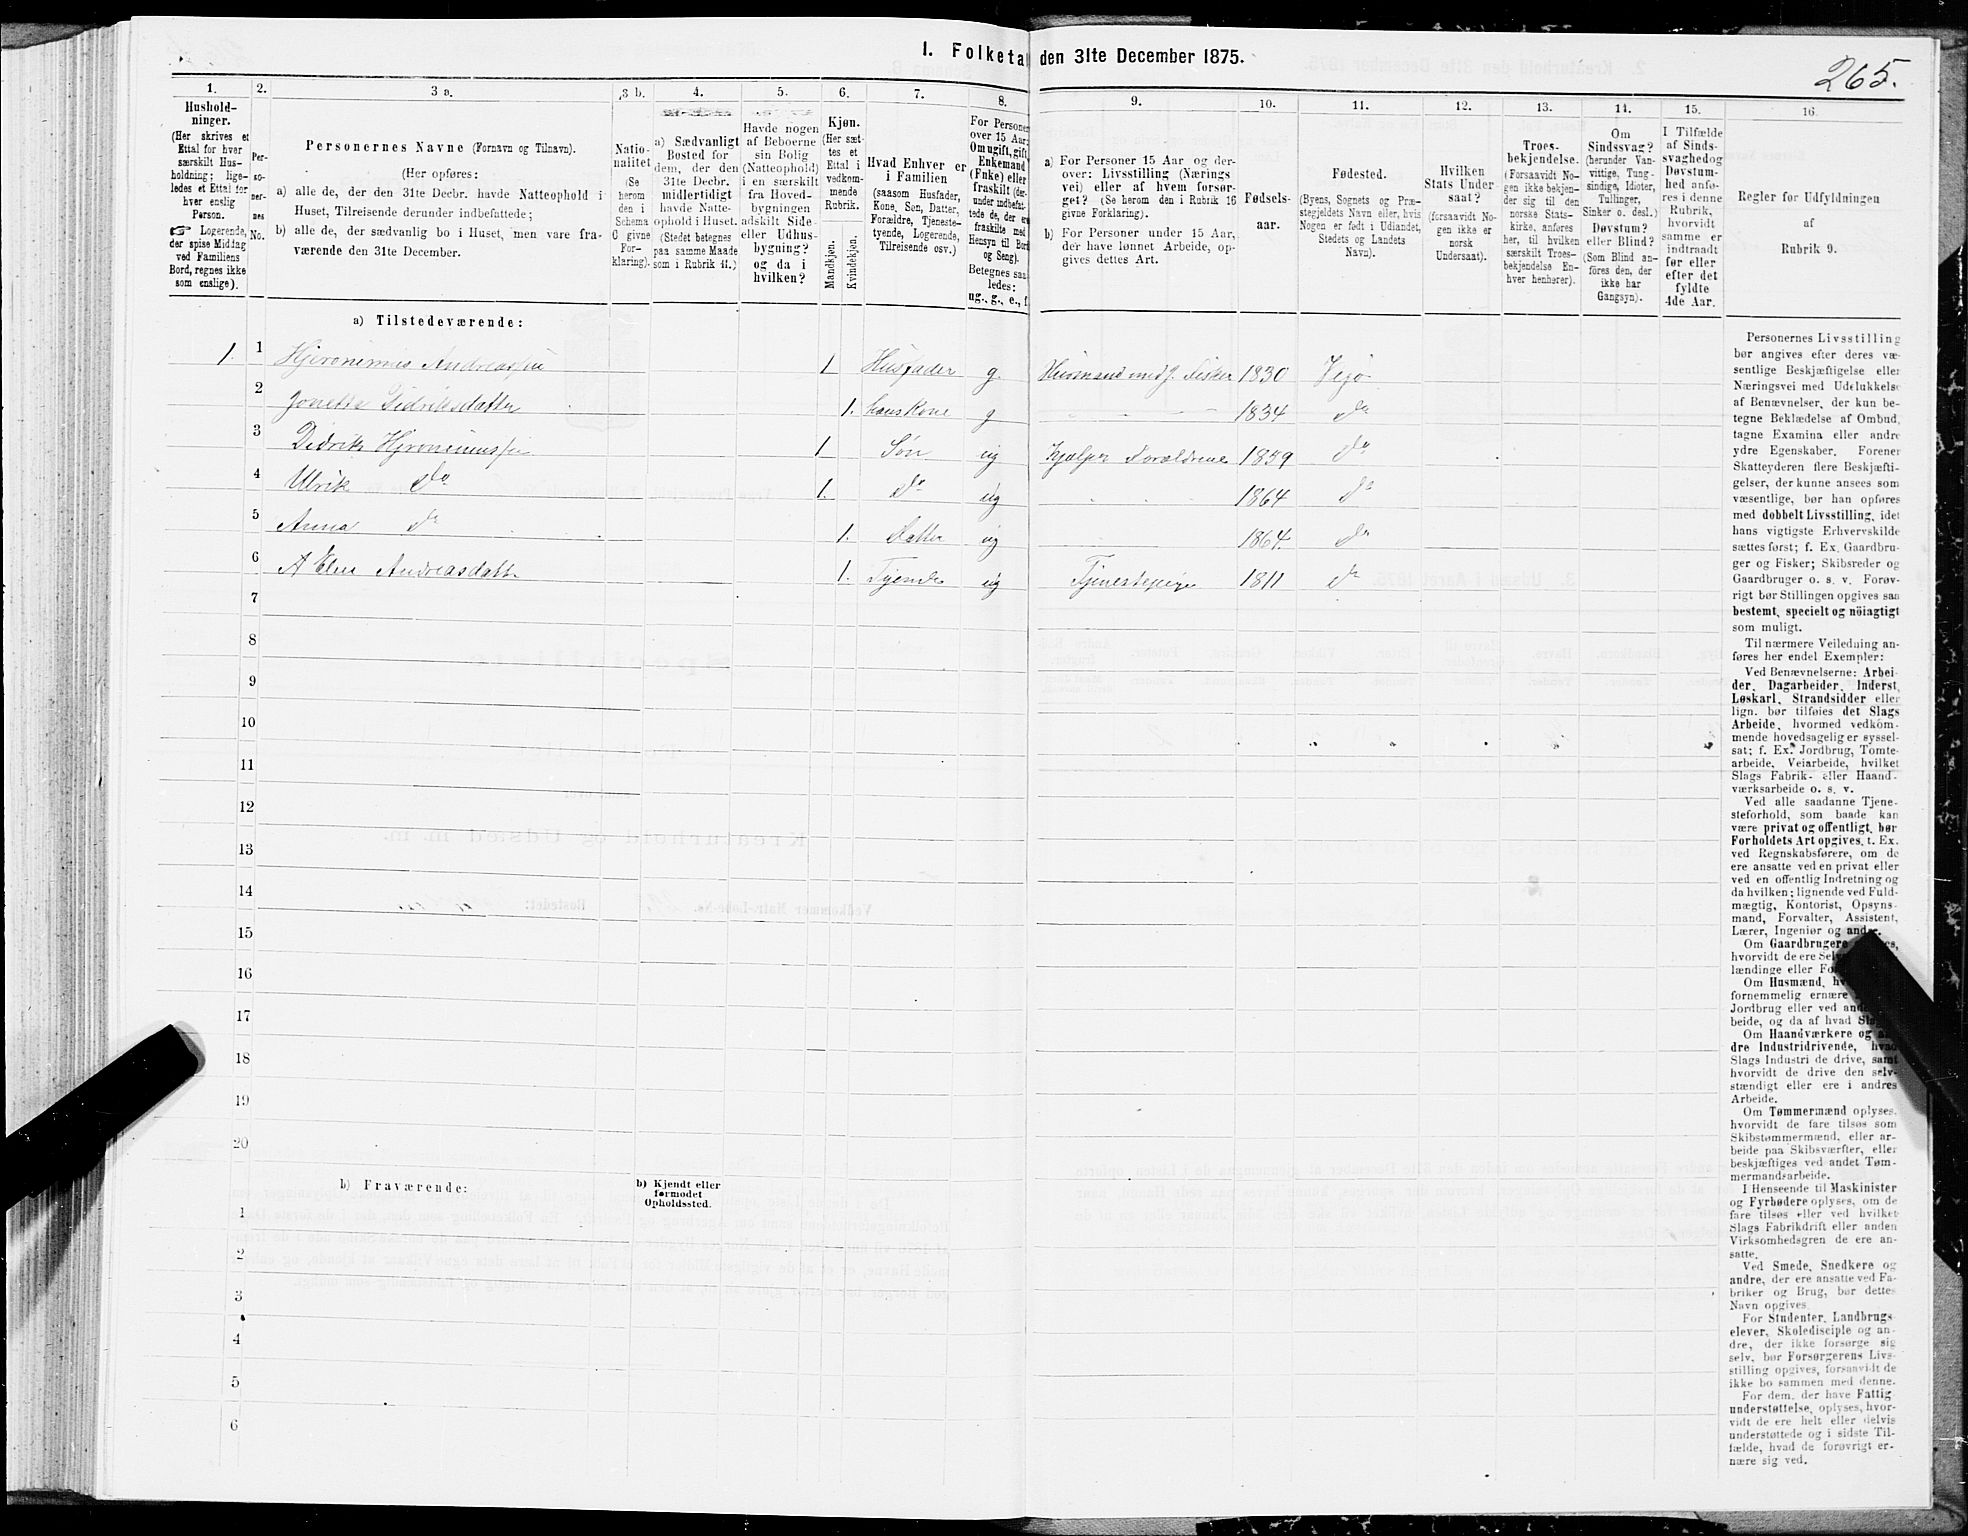 1. Folketal den 31te December 1875.
265.
1.
Hushold-
ninger.
(Her skrives et
Ettal for hver
særskilt Hus-
holdning; lige-
ledes et Ettal for
hver enslig
Person.
☞ Logerende,
der spise Middag
ved Familiens
Bord, regnes ikke
som enslige).
2.
Per-
so-
ner-
nes
No.
3 a.
Personernes Navne (Fornavn og Tilnavn).
(Her opføres:
a) alle de, der den 31te Decbr. havde Natteophold i
Huset, Tilreisende derunder indbefattede;
b) alle de, der sædvanlig bo i Huset, men vare fra-
værende den 31te December.
3 b.
Natio-
nalitet
(Se
herom
den i
Schema
C givne
For-
klaring).
4.
a) Sædvanligt
Bosted for
dem, der den
31te Decbr.
midlertidigt
havde Natte-
ophold i Huset.
(Stedet betegnes
paa samme Maade
som i Rubrik 11.)
5.
Havde nogen
af Beboerne
sin Bolig
(Natteophold)
i en særskilt
fra Hoved-
bygningen
adskilt Side-
eller Udhus-
bygning?
og da i
hvilken?
6.
Kjøn.
(Her sæt-
tes et
Ettal i
vedkom-
mende
Rubrik.
Mandkjøn.
Kvindekjøn.
7.
Hvad Enhver er
i Familien
(saasom Husfader,
Kone, Søn, Datter,
Forældre, Tjeneste-
tyende, Logerende,
Tilreisende osv.)
8.
For Personer
over 15 Aar:
Om ugift, gift,
Enkemand
(Enke) eller
fraskilt (der-
under indbefat-
tede de, der ere
fraskilte med
Hensyn til Bord
og Seng).
Betegnes saa-
ledes:
ug., g., e., f.
9.
a) For Personer 15 Aar og der-
over: Livsstilling (Nærings
vei) eller af hvem forsør-
get? (Se herom den i Rubrik 16
givne Forklaring).
b) For Personer under 15 Aar,
der have lønnet Arbeide, op-
gives dettes Art.
10.
Fødsels-
aar.
11.
Fødested.
(Byens, Sognets og Præ-
stegjeldets Navn eller, hvis
Nogen er født i Udlandet,
Stedets og Landets
Navn).
12.
Hvilken
Stats Under
saat?
(forsaavidt No-
gen ikke er
norsk
Undersaat).
13.
Troes-
bekjendelse.
(Forsaavidt No-
gen ikke bekjen-
der sig til den
norske Stats-
kirke, anføres
her, til hvilken
særskilt Troes-
bekjendelse En-
hver henhører).
14.
Om
Sindssvag?
(herunder Van-
vittige, Tung-
sindige, Idioter,
Tullinger,
Sinker o. desl.)
Døvstum?
eller Blind?
(Som Blind an-
føres den, der
ikke har
Gangsyn).
15.
I Tilfælde
af Sinds-
svaghedog
Døvstum-
hed anfø-
res i denne
Rubrik,
hvorvidt
samme er
indtraadt
før eller
efter det
fyldte
4de Aar.
16.
Regler for Udfyldningen
af
Rubrik 9.
a) Tilstedeværende:
1. 1 Hjeronimus Andreassen 1 Husfader g. Husmand med J. Fisker 1830 Vegø
2 Jonetta Didriksdatter 1. hans Kone g 1834 do
3 Didrik Hjronimussen 1 Søn ug hjælper Forældrene 1859 do
4 Ulrik do 1. do ug 1864 do
5 Anna do 1. Datter ug 1864. do
6 A Elen Andreasdatt 1. Tyende ug Tjenestepige 1811 do
7
8
9
10
11
12
13
14
15
16
17
18
19
20
b) Fraværende:
b) Kjendt eller
formodet
Opholdssted.
1
2
3
4
5
6
Personernes Livsstilling
bør angives efter deres væ-
sentlige Beskjæftigelse eller
Næringsvei med Udelukkelse
af Benævnelser, der kun be-
tegne Beklædelse af Ombud,
tagne Examina eller andre
ydre Egenskaber. Forener
Skatteyderen flere Beskjæfti-
gelser, der kunne ansees som
væsentlige, bør han opføres
med dobbelt Livsstilling, idet
hans vigtigste Erhvervskilde
sættes først; f. Ex. Gaardbru-
ger og Fisker; Skibsreder og
Gaardbruger o. s. v. Forøv-
rigt bør Stillingen opgives saa
bestemt, specielt og nöiagtigt
som muligt.
Til nærmere Veiledning an-
føres her endel Exempler:
Ved Benævnelserne: Arbei-
der, Dagarbeider, Inderst,
Løskarl, Strandsidder eller
lign. bør tilføies det Slags
Arbeide, hvormed vedkom-
mende hovedsagelig er syssel-
sat; f. Ex. Jordbrug, Tomte-
arbeide, Veiarbeide, hvilket
Slags Fabrik- eller Haand-
værksarbeide o. s. v.
Ved alle saadanne Tjene-
steforhold, som baade kan
være privat og offentligt, bør
Forholdets Art opgives, t. Ex.
ved Regnskabsførere, om de
ere ansatte ved en privat eller
ved en offentlig Indretning og
da hvilken; lignende ved Fuld-
mægtig, Kontorist, Opsyns-
mand, Forvalter, Assistent,
Lærer, Ingeniør og andre.
Om Gaardbrugere
hvorvidt de ere
lændinge eller
Om Husmænd,
fornemmelig ernære
Jordbrug eller ved
beide, og da af hvad
Om Haandværkere og
dre Industridrivende, hvad
Slags Industri de drive, samt
hvorvidt de drive den selv-
stændigt eller ere i andres
Arbeide.
Om Tømmermænd oplyses,
hvorvidt de fare tilsøs som
Skibstømmermænd, eller ar-
beide paa Skibsværfter, eller
beskjæftiges ved andet Tøm-
mermandsarbeide.
I Henseende til Maskinister
og Fyrbødere oplyses, om de
fare tilsøs eller ved hvilket
Slags Fabrikdrift eller anden
Virksomhedsgren de ere an-
satte.
Ved Smede, Snedkere og
andre, der ere ansatte ved Fa-
briker og Brug, bør dettes
Navn opgives.
For Studenter, Landbrugs-
elever, Skoledisciple og an-
dre, der ikke forsørge sig
selv, bør Forsørgerens Livs-
stilling opgives, forsaavidt de
ikke bo sammen med denne.
For dem, der have Fattig
understøttelse, oplyses, hvor-
vidt de ere helt eller delvis
understøttede og i sidste Til-
fælde, hvad de forøvrigt er-
nære sig ved.